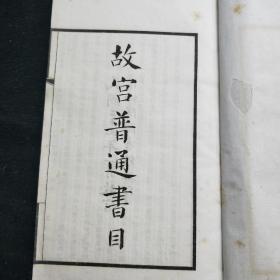 故宫普通書目